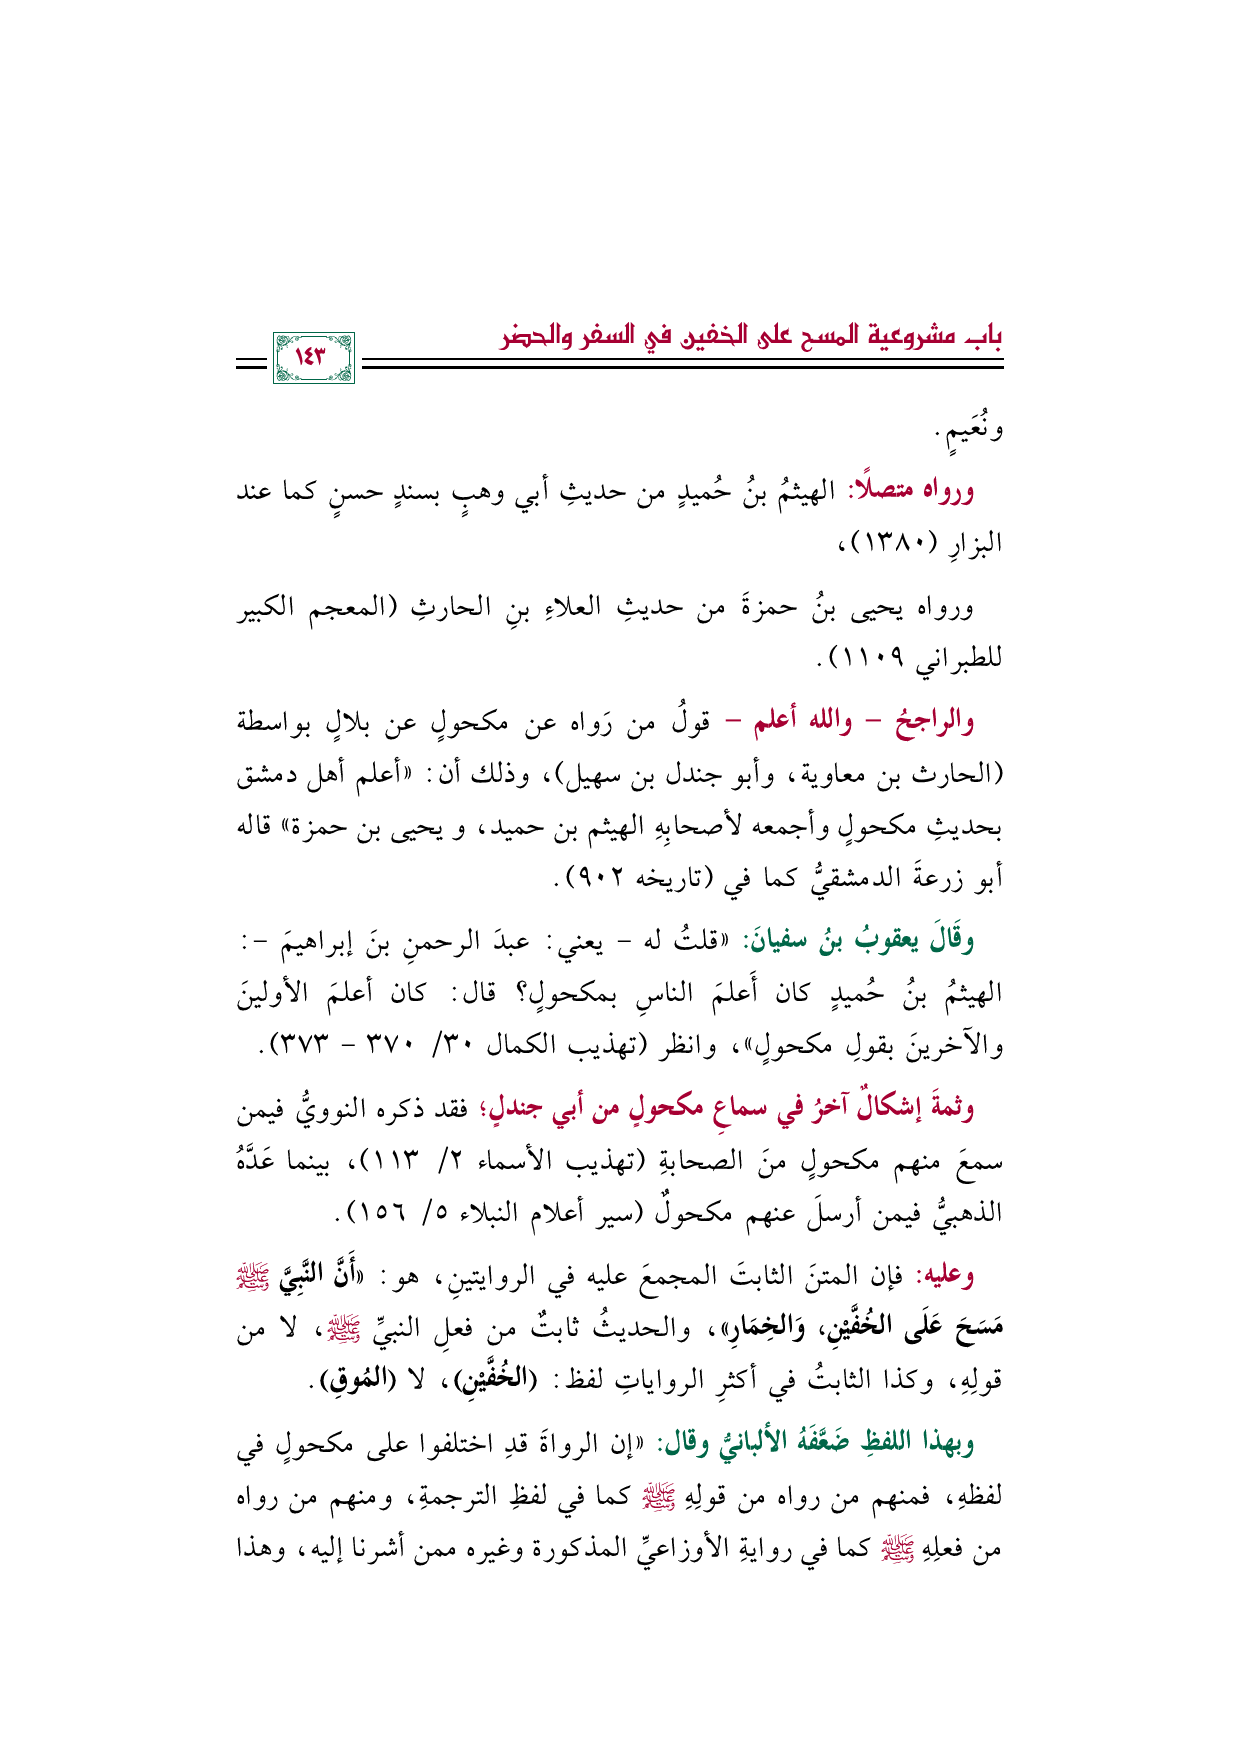 باب مشروعية المسح على الخفين في السفر والحضر
١٤٣
ونُعَيمٍ.
ورواه متصلًا: الهيثمُ بنُ حُميدٍ من حديثِ أبي وهبٍ بسندٍ حسنٍ كما عند
البزارِ (١٣٨٠)،
ورواه يحيى بنُ حمزةَ من حديثِ العلاءِ بنِ الحارثِ (المعجم الكبير
للطبراني ١١٠٩).
والراجحُ – والله أعلم – قولُ من رَواه عن مكحولٍ عن بلالٍ بواسطة
(الحارث بن معاوية، وأبو جندل بن سهيل)، وذلك أن: «أعلم أهل دمشق
بحديثِ مكحولٍ وأجمعه لأصحابِهِ الهيثم بن حميد، و يحيى بن حمزة» قاله
أبو زرعةَ الدمشقيُّ كما في (تاريخه ٩٠٢).
وقَالَ يعقوبُ بنُ سفيانَ: «قلتُ له – يعني: عبدَ الرحمنِ بنَ إبراهيمَ –:
الهيثمُ بنُ حُميدٍ كان أَعلمَ الناسِ بمكحولٍ؟ قال: كان أعلمَ الأولينَ
والآخرينَ بقولِ مكحولٍ»، وانظر (تهذيب الكمال ٣٠/ ٣٧٠ – ٣٧٣).
وثمةَ إشكالٌ آخرُ في سماعِ مكحولٍ من أبي جندلٍ؛ فقد ذكره النوويُّ فيمن
سمعَ منهم مكحولٍ منَ الصحابةِ (تهذيب الأسماء ٢/ ١١٣)، بينما عَدَّهُ
الذهبيُّ فيمن أرسلَ عنهم مكحولٌ (سير أعلام النبلاء ٥/ ١٥٦).
وعليه: فإن المتنَ الثابتَ المجمعَ عليه في الروايتينِ، هو: «أَنَّ النَّبِيَّ ﷺ
مَسَحَ عَلَى الخُفَّيْنِ، وَالخِمَارِ»، والحديثُ ثابتٌ من فعلِ النبيِّ ﷺ، لا من
قولِهِ، وكذا الثابتُ في أكثرِ الرواياتِ لفظ: (الخُفَّيْنِ)، لا (المُوقِ).
وبهذا اللفظِ ضَعَّفَهُ الألبانيُّ وقال: «إن الرواةَ قدِ اختلفوا على مكحولٍ في
لفظهِ، فمنهم من رواه من قولِهِ ﷺ كما في لفظِ الترجمةِ، ومنهم من رواه
من فعلِهِ ﷺ كما في روايةِ الأوزاعيِّ المذكورة وغيره ممن أشرنا إليه، وهذا